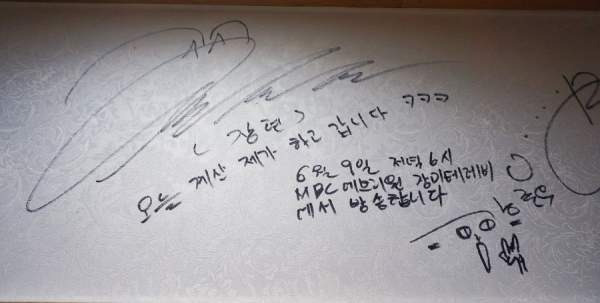 (장현)
오늘 계산 제가 하고 갑니다 ㅋㅋㅋ
6월 9일 저녁 6시
MBC 에브리원 장미테레비
에서 방송합니다